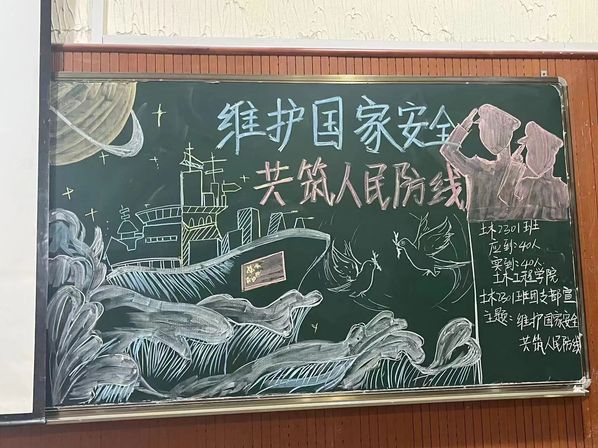 维护国家安全
共筑人民防线
土木2301班
应到:40人
实到:40人
土木工程学院
土木2301班团支部宣
主题:维护国家安全
共筑人民防线